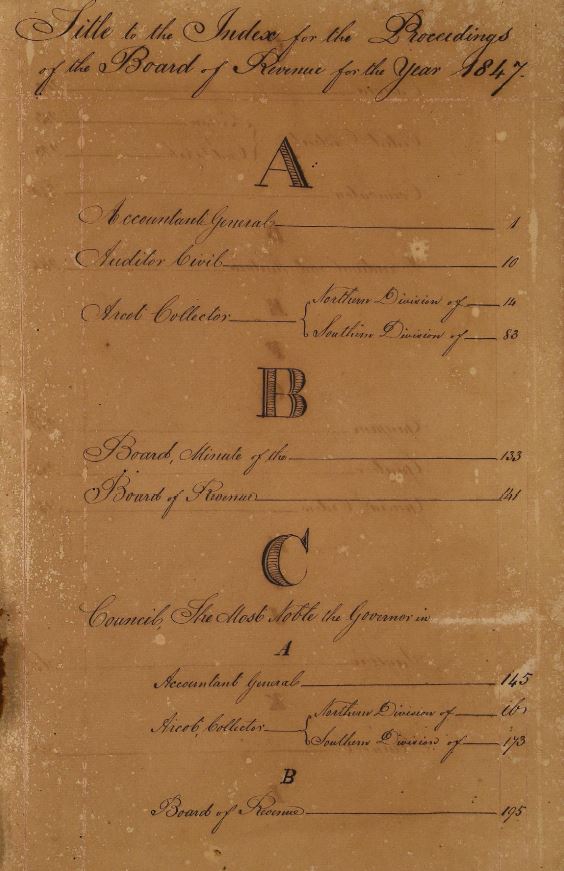 Title to the Index for the Proceedings
of the Board of Revenue for the Year 1847.
A
Accountant General 1
Auditor Civil 10
Arcot Collector { Northern Division of 14
Southern Division of 83
B
Board, Minute of the 133
Board of Revenue 141
C
Council, The Most Noble the Governor in
A
Accountant General 145
Arcot, Collector { Northern Division of
Southern Division of 173
B
Board of Revenue 195